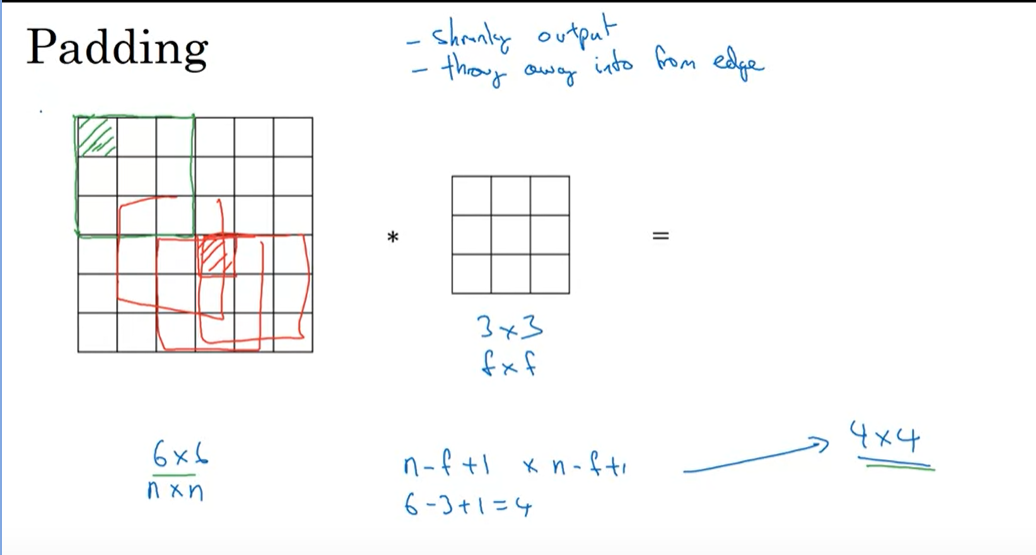 Padding
- shrinky output
- throw away info from edge
*
=
3x3
fxf
6x6
nxn
n-f+1 x n-f+1
6-3+1=4
4x4